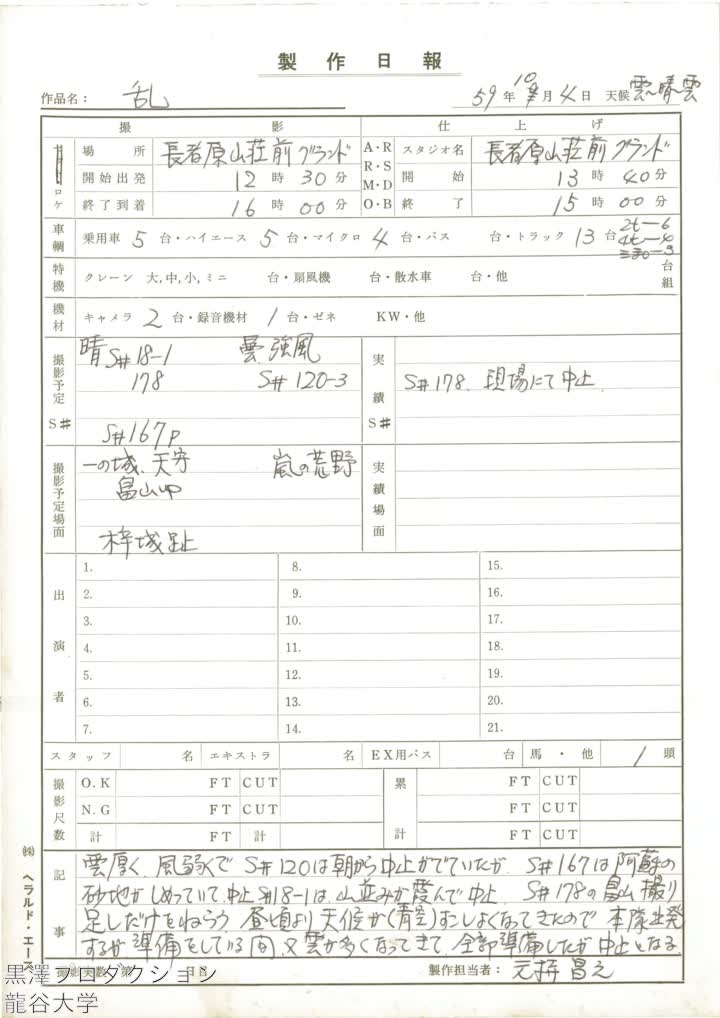 製作日報
作品名： 乱 59年10月4日 天候 雲〜晴〜雲
撮影 仕上げ
ロケ 場所 長者原山荘前グランド A・R R・S M・D O・B スタジオ名 長者原山荘前グランド
開始出発 12時30分 開始 13時40分
終了到着 16時00分 終了 15時00分
車輌 乗用車 5台・ハイエース 5台・マイクロ 4台・バス 台・トラック 13台 2t―6 4t―4
特機 クレーン 大,中,小,ミニ 台・扇風機 台・散水車 台・他 台組
機材 キャメラ 2台・録音機材 1台・ゼネ KW・他
撮影予定S# 晴 S#18-1 曇.強風 実績S#
178 S#120-3 S#178. 現場にて中止
S#167P
撮影予定場面 一の城.天守 嵐の荒野 実績場面
畠山
梓城趾
出演者 1. 8. 15.
2. 9. 16.
3. 10. 17.
4. 11. 18.
5. 12. 19.
6. 13. 20.
7. 14. 21.
スタッフ 名 エキストラ 名 EX用バス 台 馬・他 1頭
撮影尺数 O.K FT CUT 累計 FT CUT
N.G FT CUT FT CUT
計 FT 計 FT CUT
記事 雲厚く、風弱くで S#120は朝から中止がでていたが、S#167は阿蘇の
砂地がしめっていて、中止 S#18-1は、山並みが霞んで中止、S#178の畠山撮り
足しだけをねらう、昼頃より天候が(青空)すこしよくなってきたので本隊出発
するが準備をしている間、又雲が多くなってきて、全部準備したが中止となる。
撮影実数 第 日目 製作担当者： 元持昌之
㈱ヘラルド・エース
黒澤プロダクション
龍谷大学